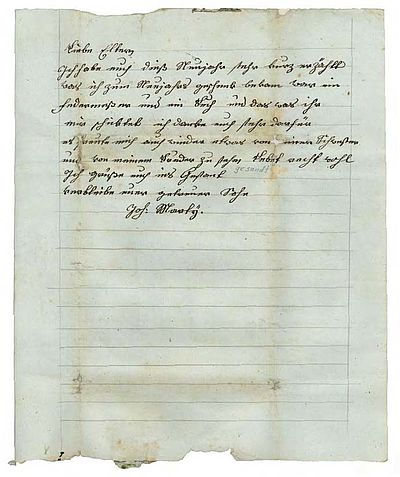 Liebe Eltern
Ich habe euch dieß Neujahr sehr kurz erzählt
was ich zum Neujahrs geschenk bekam war ein
Federmesser und ein Buch und das was ihr
mir schicktet ich danke euch sehr dafür
es freute mich auch wieder etwas von meiner Schwester
und von meinem Bruder zu sehen lebet recht wohl
Ich grüße euch ins Gesamt
gesamt
verbleibe euer getreuer Sohn
Joh: Marty.